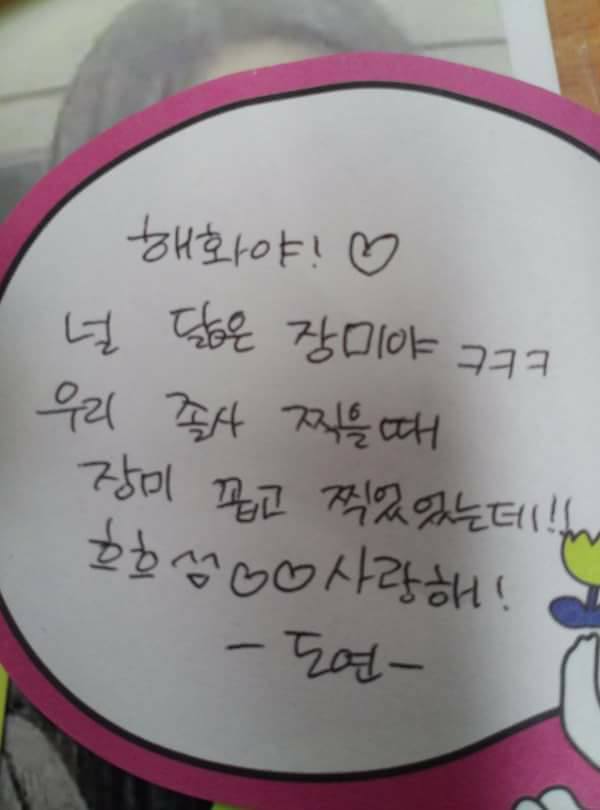 해화야! ♡
널 닮은 장미야 ㅋㅋㅋ
우리 졸사 찍을때
장미 꼽고 찍었었는데!!!
흐흐 섬♡♡사랑해!
- 도연 -